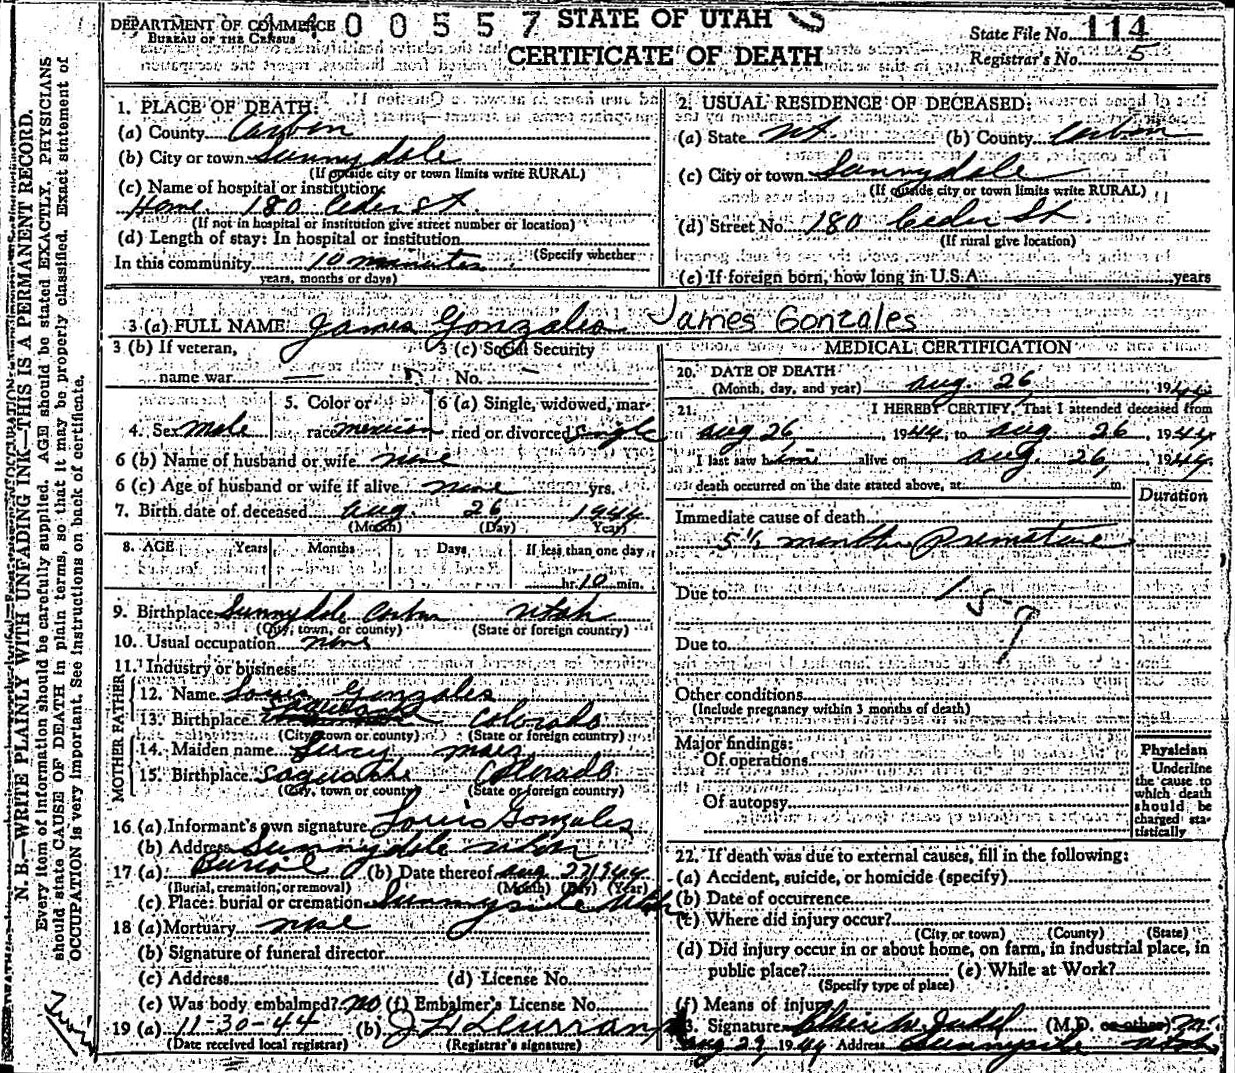 DEPARTMENT OF COMMERCE
BUREAU OF THE CENSUS
00557
STATE OF UTAH
CERTIFICATE OF DEATH
State File No. 114
Registrar's No. 5
N. B.—WRITE PLAINLY WITH UNFADING INK—THIS IS A PERMANENT RECORD.
Every item of information should be carefully supplied. AGE should be stated EXACTLY. PHYSICIANS
should state CAUSE OF DEATH in plain terms, so that it may be properly classified. Exact statement of
OCCUPATION is very important. See instructions on back of certificate.
1. PLACE OF DEATH:
(a) County Carbon
(b) City or town Sunnydale
(If outside city or town limits write RURAL)
(c) Name of hospital or institution
Home 180 Ceder St.
(If not in hospital or institution give street number or location)
(d) Length of stay: In hospital or institution
(Specify whether
In this community 10 minutes
years, months or days)
2. USUAL RESIDENCE OF DECEASED:
(a) State Ut (b) County Carbon
(c) City or town Sunnydale
(If outside city or town limits write RURAL)
(d) Street No. 180 Ceder St
(If rural give location)
(e) If foreign born, how long in U.S.A. years
3 (a) FULL NAME James Gonzales James Gonzales
3 (b) If veteran,
name war —
3 (c) Social Security
No. —
4. Sex Male
5. Color or
race mexican
6 (a) Single, widowed, mar-
ried or divorced Single
6 (b) Name of husband or wife none
6 (c) Age of husband or wife if alive none yrs.
7. Birth date of deceased Aug. 26 1944
(Month) (Day) (Year)
8. AGE Years Months Days If less than one day
hr. 10 min.
9. Birthplace Sunnydale Carbon Utah
(City, town, or county) (State or foreign country)
10. Usual occupation none
11. Industry or business
FATHER
12. Name Louis Gonzales
13. Birthplace Saguache Colorado
(City, town or county) (State or foreign country)
MOTHER
14. Maiden name Lucy Maes
15. Birthplace Saguache Colorado
(City, town or county) (State or foreign country)
16 (a) Informant's own signature Louis Gonzales
(b) Address Sunnydale Utah
17 (a) Burial (b) Date thereof Aug 27 1944
(Burial, cremation, or removal) (Month) (Day) (Year)
(c) Place: burial or cremation Sunnyside Utah
18 (a) Mortuary none
(b) Signature of funeral director
(c) Address (d) License No.
(e) Was body embalmed? no (f) Embalmer's License No.
19 (a) 11-30-44 (b)
(Date received local registrar) (Registrar's signature)
MEDICAL CERTIFICATION
20. DATE OF DEATH
(Month, day, and year) Aug. 26, 1944
21. I HEREBY CERTIFY, That I attended deceased from
Aug 26, 1944, to Aug 26, 1944
I last saw him alive on Aug. 26, 1944
death occurred on the date stated above, at m.
Duration
Immediate cause of death
5 1/2 month Premature
Due to 159
Due to
Other conditions
(Include pregnancy within 3 months of death)
Major findings:
Of operations
Of autopsy
Physician
Underline
the cause to
which death
should be
charged sta-
tistically
22. If death was due to external causes, fill in the following:
(a) Accident, suicide, or homicide (specify)
(b) Date of occurrence
(c) Where did injury occur?
(City or town) (County) (State)
(d) Did injury occur in or about home, on farm, in industrial place, in
public place? (e) While at Work?
(Specify type of place)
(f) Means of injury
23. Signature (M.D. or other) M.
Aug 29, 1944 Address Sunnyside Utah